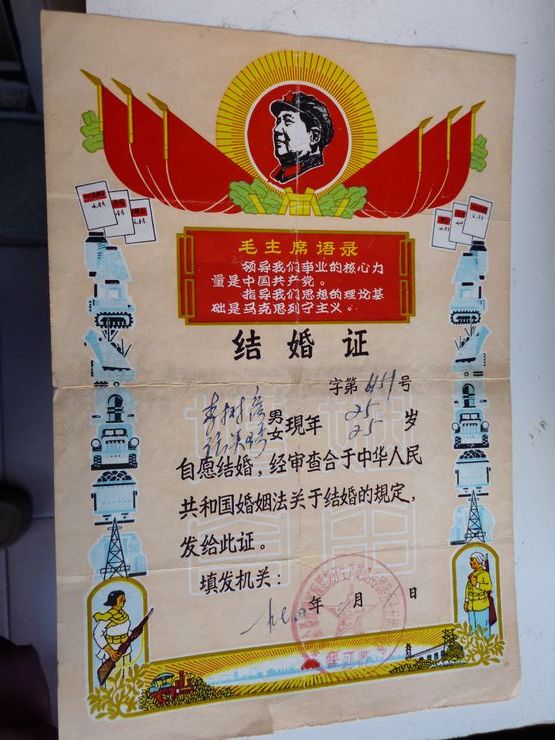 毛主席语录
领导我们事业的核心力
量是中国共产党。
指导我们思想的理论基
础是马克思列宁主义。
结婚证
字第 号
李树
男 25
女现年 25 岁
自愿结婚，经审查合于中华人民
共和国婚姻法关于结婚的规定，
发给此证。
填发机关：
年 月 日